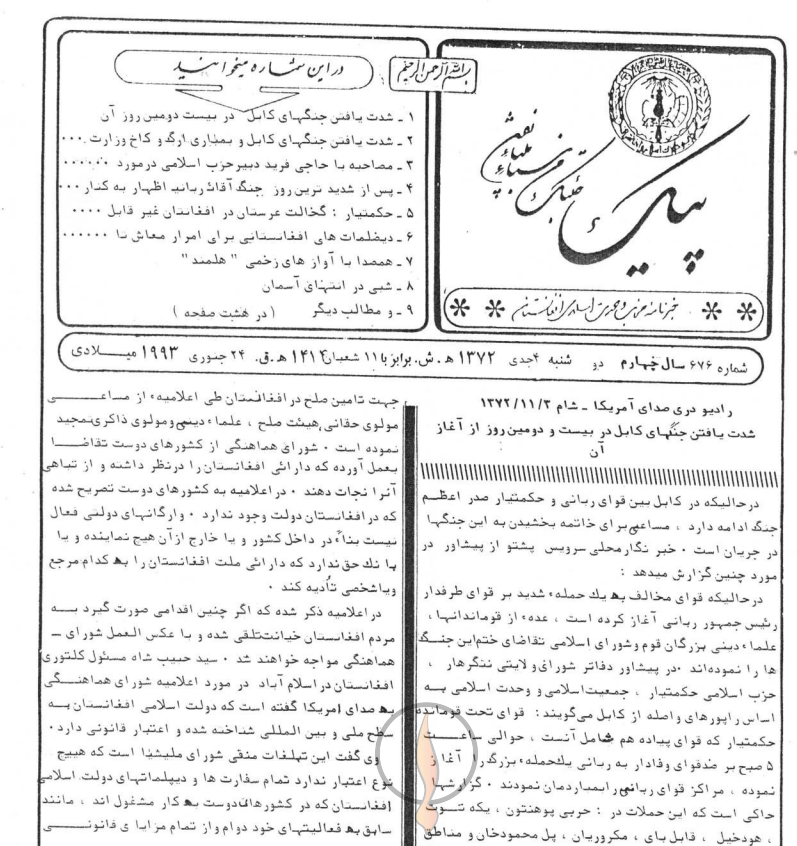 بسم الله الرحمن الرحیم
در این شماره میخوانید
۱ ـ شدت یافتن جنگهای کابل در بیست دومین روز آن
۲ ـ شدت یافتن جنگهای کابل و بمباری ارگ و کاخ وزارت ...
۳ ـ مصاحبه با حاجی فرید دبیر حزب اسلامی در مورد ......
۴ ـ پس از شدید ترین روز جنگ آقای ربانی اظهار به کنار ...
۵ ـ حکمتیار : گخالت عربستان در افغانستان غیر قابل ....
۶ ـ دیپلمات های افغانستانی برای امرار معاش تا ......
۷ ـ همصدا با آواز های زخمی " هلمند "
۸ ـ شبی در انتهای آسمان
۹ ـ و مطالب دیگر ( در هشت صفحه )
پیک
خبرنامه حزب وحدت اسلامی افغانستان
شماره ۶۷۶ سال چهارم دو شنبه ۴جدی ۱۳۷۲ ه‍ . ش. برابر با ۱۱ شعبان ۱۴۱۴ ه‍ .ق. ۲۴ جنوری ۱۹۹۳ میــلادی
رادیو دری صدای آمریکا ـ شام ۱۳۷۲/۱۱/۳
شدت یافتن جنگهای کابل در بیست و دومین روز از آغاز
آن
درحالیکه در کابل بین قوای ربانی و حکمتیار صدر اعظـم
جنگ ادامه دارد ، مساعی برای خاتمه بخشیدن به این جنگها
در جریان است ۰ خبر نگار محلی سرویس پشتو از پیشاور در
مورد چنین گزارش میدهد :
درحالیکه قوای مخالف به یك حملهء شدید بر قوای طرفدار
رئیس جمهور ربانی آغاز کرده است ، عدهء از قوماندانها ،
علماء دینی بزرگان قوم و شورای اسلامی تقاضای ختم این جنــگ
ها را نموده‌اند ۰ در پیشاور دفاتر شورای ولایتی ننگرهار ،
حزب اسلامی حکمتیار ، جمعیت اسلامی و وحدت اسلامی بــه
اساس راپورهای واصله از کابل می‌گویند : قوای تحت قومانده
حکمتیار که قوای پیاده هم شامل آنست ، حوالی ساعــت
۵ صبح بر ضد قوای وفادار به ربانی یك حملهء بزرگ را آغاز
نموده ، مراکز قوای ربانی را بمباردمان نمودند ۰ گزارشها
حاکی است که این حملات در : حربی پوهنتون ، یکه تــوت
، هودخیل ، قابل بای ، مکروریان ، پل محمودخان و مناطق
جهت تامین صلح در افغانستان طی اعلامیهء از مساعــی
مولوی حقانی هیئت صلح ، علماء دینی و مولوی ذاکری تمجید
نموده است ۰ شورای هماهنگی از کشورهای دوست تقاضــا
بعمل آورده که دارائی افغانستان را در نظر داشته و از تباهی
آنرا نجات دهند ۰ در اعلامیه به کشورهای دوست تصریح شده
که در افغانستان دولت وجود ندارد ۰ وارگانهای دولتی فعال
نیست بناءً در داخل کشور و یا خارج از آن هیچ نماینده و یا
بانك حق ندارد که دارائی ملت افغانستان را به کدام مرجع
ویا شخصی تأدیه کند ۰
در اعلامیه ذکر شده که اگر چنین اقدامی صورت گیرد بــه
مردم افغانستان خیانت تلقی شده و با عکس العمل شورای ـ
هماهنگی مواجه خواهند شد ۰ سید حبیب شاه مسئول کلتوری
افغانستان در اسلام آباد در مورد اعلامیه شورای هماهنــگی
به صدای امریکا گفته است که دولت اسلامی افغانستان بــه
سطح ملی و بین المللی شناخته شده و اعتبار قانونی دارد ۰
وی گفت این تبلغات منفی شورای ملیشیا است که هییچ
نوع اعتبار ندارد تمام سفارت ها و دیپلماتهای دولت اسلامی
افغانستان که در کشورهای دوست به کار مشغول اند ، مانند
سابق به فعالیتهای خود دوام واز تمام مزایا ی قانونــی